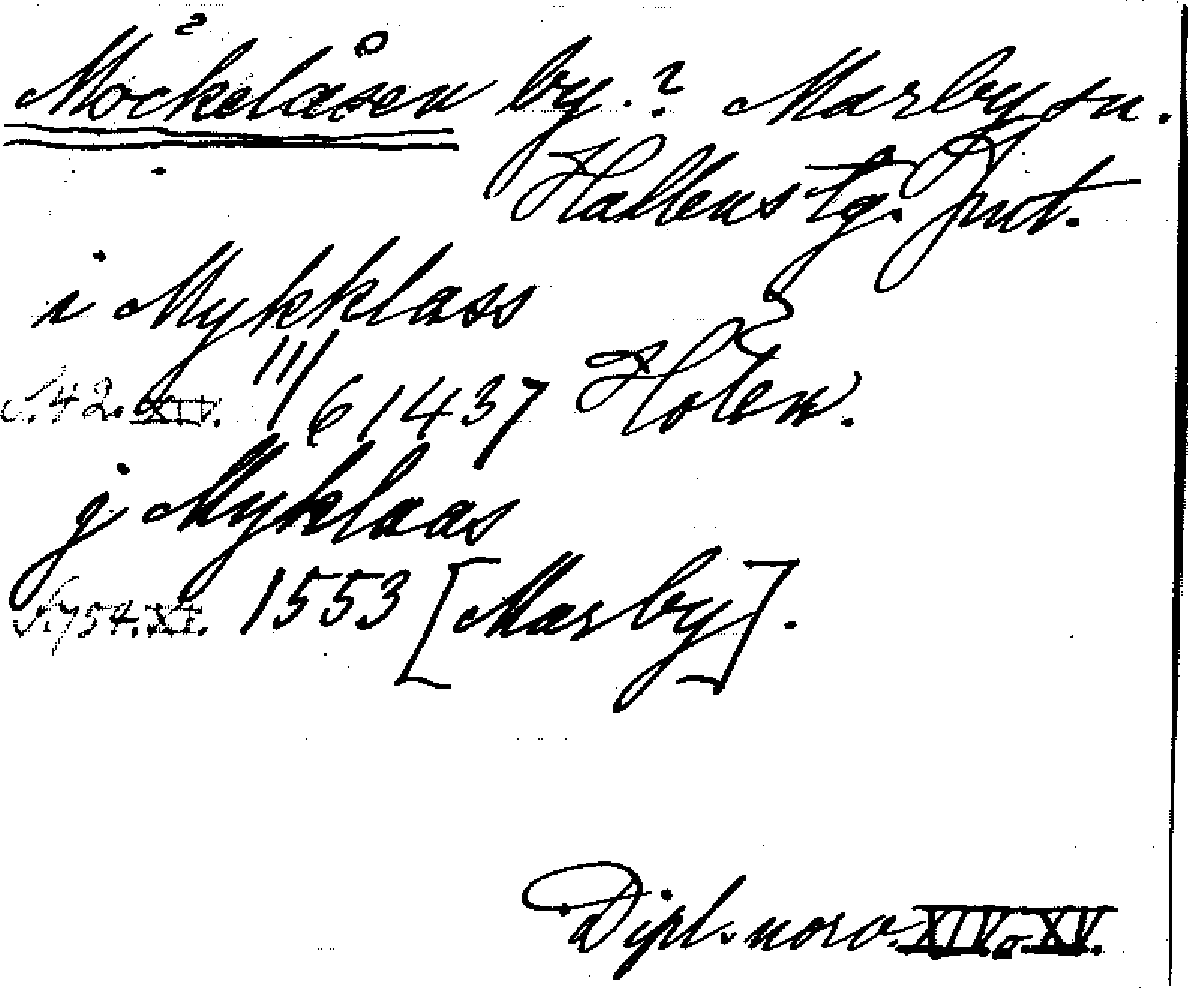 Mockelåsen by.? Marby sn.
Hallens tg. Jmt.
i Mykklass
S. 42. XIV. 11/6 1437 Holen.
j Myklaas
S. 754. XV. 1553 [Marby].
Dipl. norv. XIV o XV.